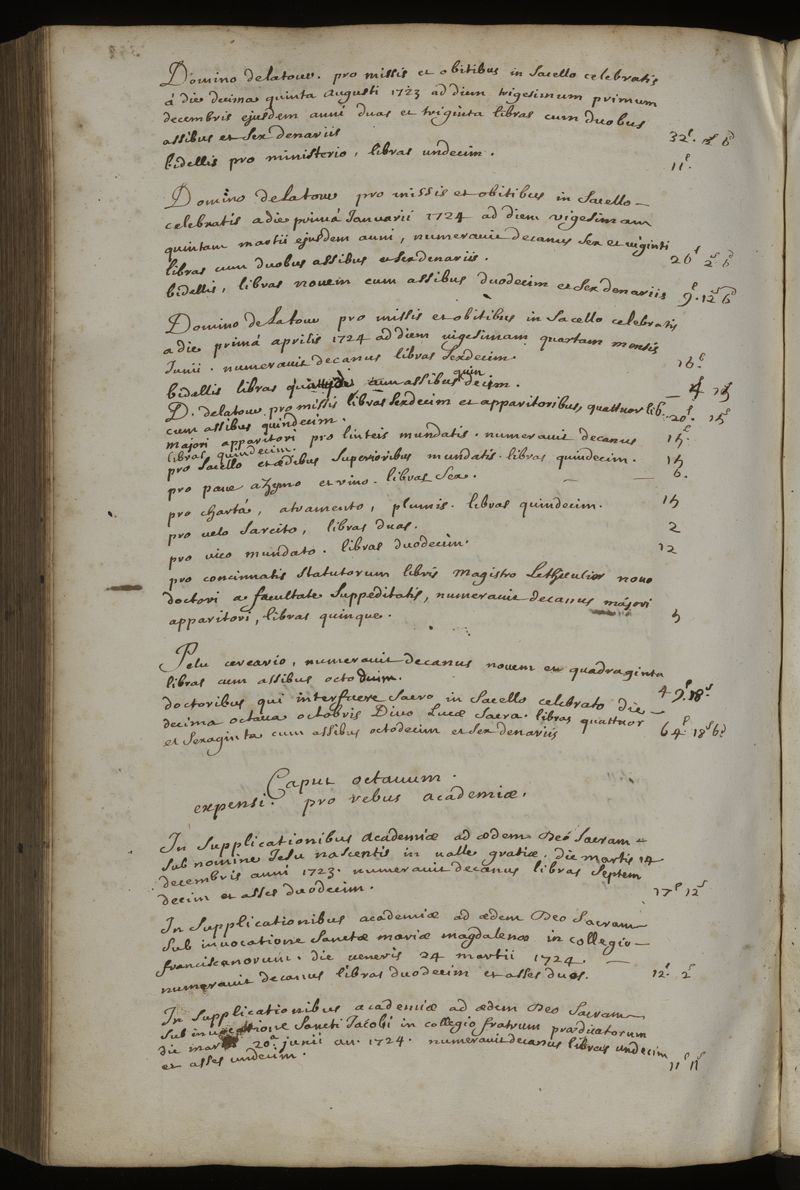 Domino delatour. pro missis et obitibus in Sacello celebratis
á die decima quinta augusti 1723 ad diem trigesimum primum
decembris ejusdem anni duas et triginta libras cum duobus
assibus et sex denariis 32ˡ. 2ˢ 6ᵈ
bidellis pro ministerio, libras undecim. 11ˡ.
Domino delatour pro missis et obitibus in Sacello
celebratis a die primá Januarii 1724 ad diem vigesimam
quintam martii ejusdem anni, numeravit decanus sex et viginti
libras cum duobus assibus et sex denariis. 26ˡ 2ˢ 6ᵈ
bidellis, libras novem cum assibus duodecim et sex denariis 9ˡ. 12ˢ 6ᵈ
Domino delatour pro missis et obitibus in Sacello celebratis
a die primá aprilis 1724 ad diem vigesimam quartam mensis
Junii. numeravit decanus libras sexdecim. 16ˡ
bidellis libras cum assibus quindecim. 4 15
D. delatour pro missis libras sexdecim et apparitoribus, quattuor lib. 20ˡ. 15ˢ
cum assibus quindecim.
majori apparitori pro linteis mundatis. numeravit decanus 15ˡ.
libras quindecim.
pro Sacello et ædibus superioribus mundatis. libras quindecim. 15
pro pane azymo et vino. libras sex. 6.
pro chartá, atramento, plumis. libras quindecim. 15
pro velo sarcito, libras duas. 2
pro vico mundato. libras duodecim. 12
pro concinnatis statutorum libris magistro novo
doctori a facultate suppeditatis, numeravit decanus májori
apparitori, libras quinque. 5
Pelu cereario, numeravit decanus novem et quadraginta
libras cum assibus octodecim. 49ˡ. 18ˢ
doctoribus qui interfuere sacro in Sacello celebrato die
decima octava octobris Divo Lucæ sacra. libras quattuor
et sexaginta cum assibus octodecim et sex denariis 64ˡ. 18ˢ 6ᵈ.
Caput octavum.
expensi. pro rebus academiæ.
In supplicationibus academiæ ad ædem Deo sacram
sub nomine Jesu nascentis in valle gratiæ. die martis 14
decembris anni 1723. numeravit decanus libras septem
decim et asses duodecim. 17ˡ 12ˢ
In supplicationibus academiæ ad ædem Deo sacram
sub invocatione Sanctæ mariæ magdalenæ in collegio
franciscanorum. die veneris 24 martii 1724.
numeravit decanus libras duodecim et asses duos. 12ˡ. 2ˢ
In supplicationibus academiæ ad ædem Deo sacram
sub invocatione Sancti Jacobi in collegio fratrum prædicatorum
die martis 20ᵃ. junii an. 1724. numeravit decanus libras undecim
et asses undecim. 11ˡ 11ˢ